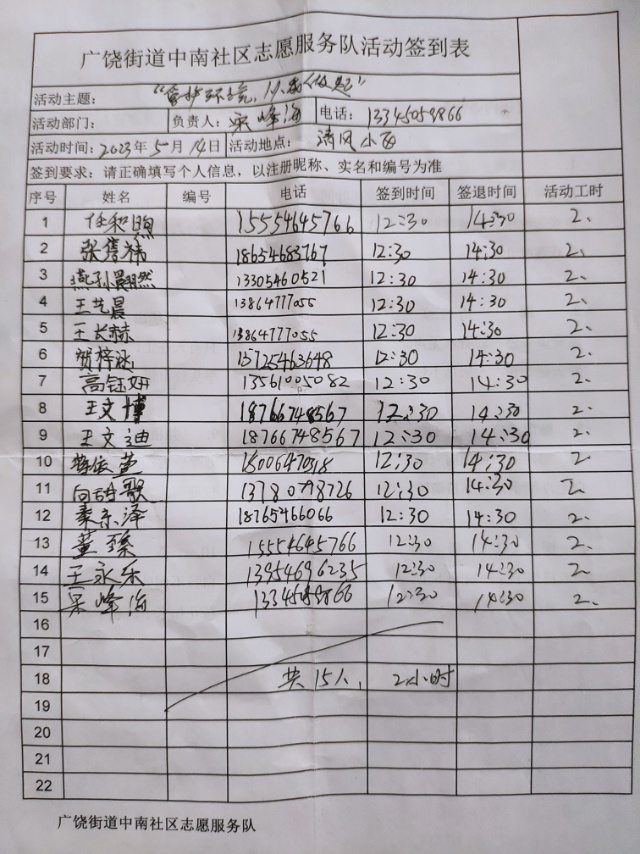 广饶街道中南社区志愿服务队活动签到表
活动主题： “管护环境，从我做起”
活动部门： 负责人：宋峰海 电话：13345059866
活动时间：2023年5月14日 活动地点：清风小西
签到要求：请正确填写个人信息，以注册昵称、实名和编号为准
序号 姓名 编号 电话 签到时间 签退时间 活动工时
1 任和煦 15554645766 12:30 14:30 2、
2 张隽祎 18654683767 12:30 14:30 2、
3 燕孙翾然 13305460521 12:30 14:30 2、
4 王艺晨 13864777055 12:30 14:30 2、
5 王长赫 13864777055 12:30 14:30 2、
6 贺梓涵 15725463648 12:30 14:30 2、
7 高钰妍 13561005082 12:30 14:30 2、
8 王文博 18766748567 12:30 14:30 2、
9 王文迪 18766748567 12:30 14:30 2、
10 12:30 14:30 2、
11 13780798726 12:30 14:30 2、
12 秦东泽 18765466066 12:30 14:30 2、
13 董臻 15554645766 12:30 14:30 2、
14 王永乐 13954696235 12:30 14:30 2、
15 宋峰海 13345059866 12:30 14:30 2、
16
17
18 共15人， 2小时
19
20
21
22
广饶街道中南社区志愿服务队